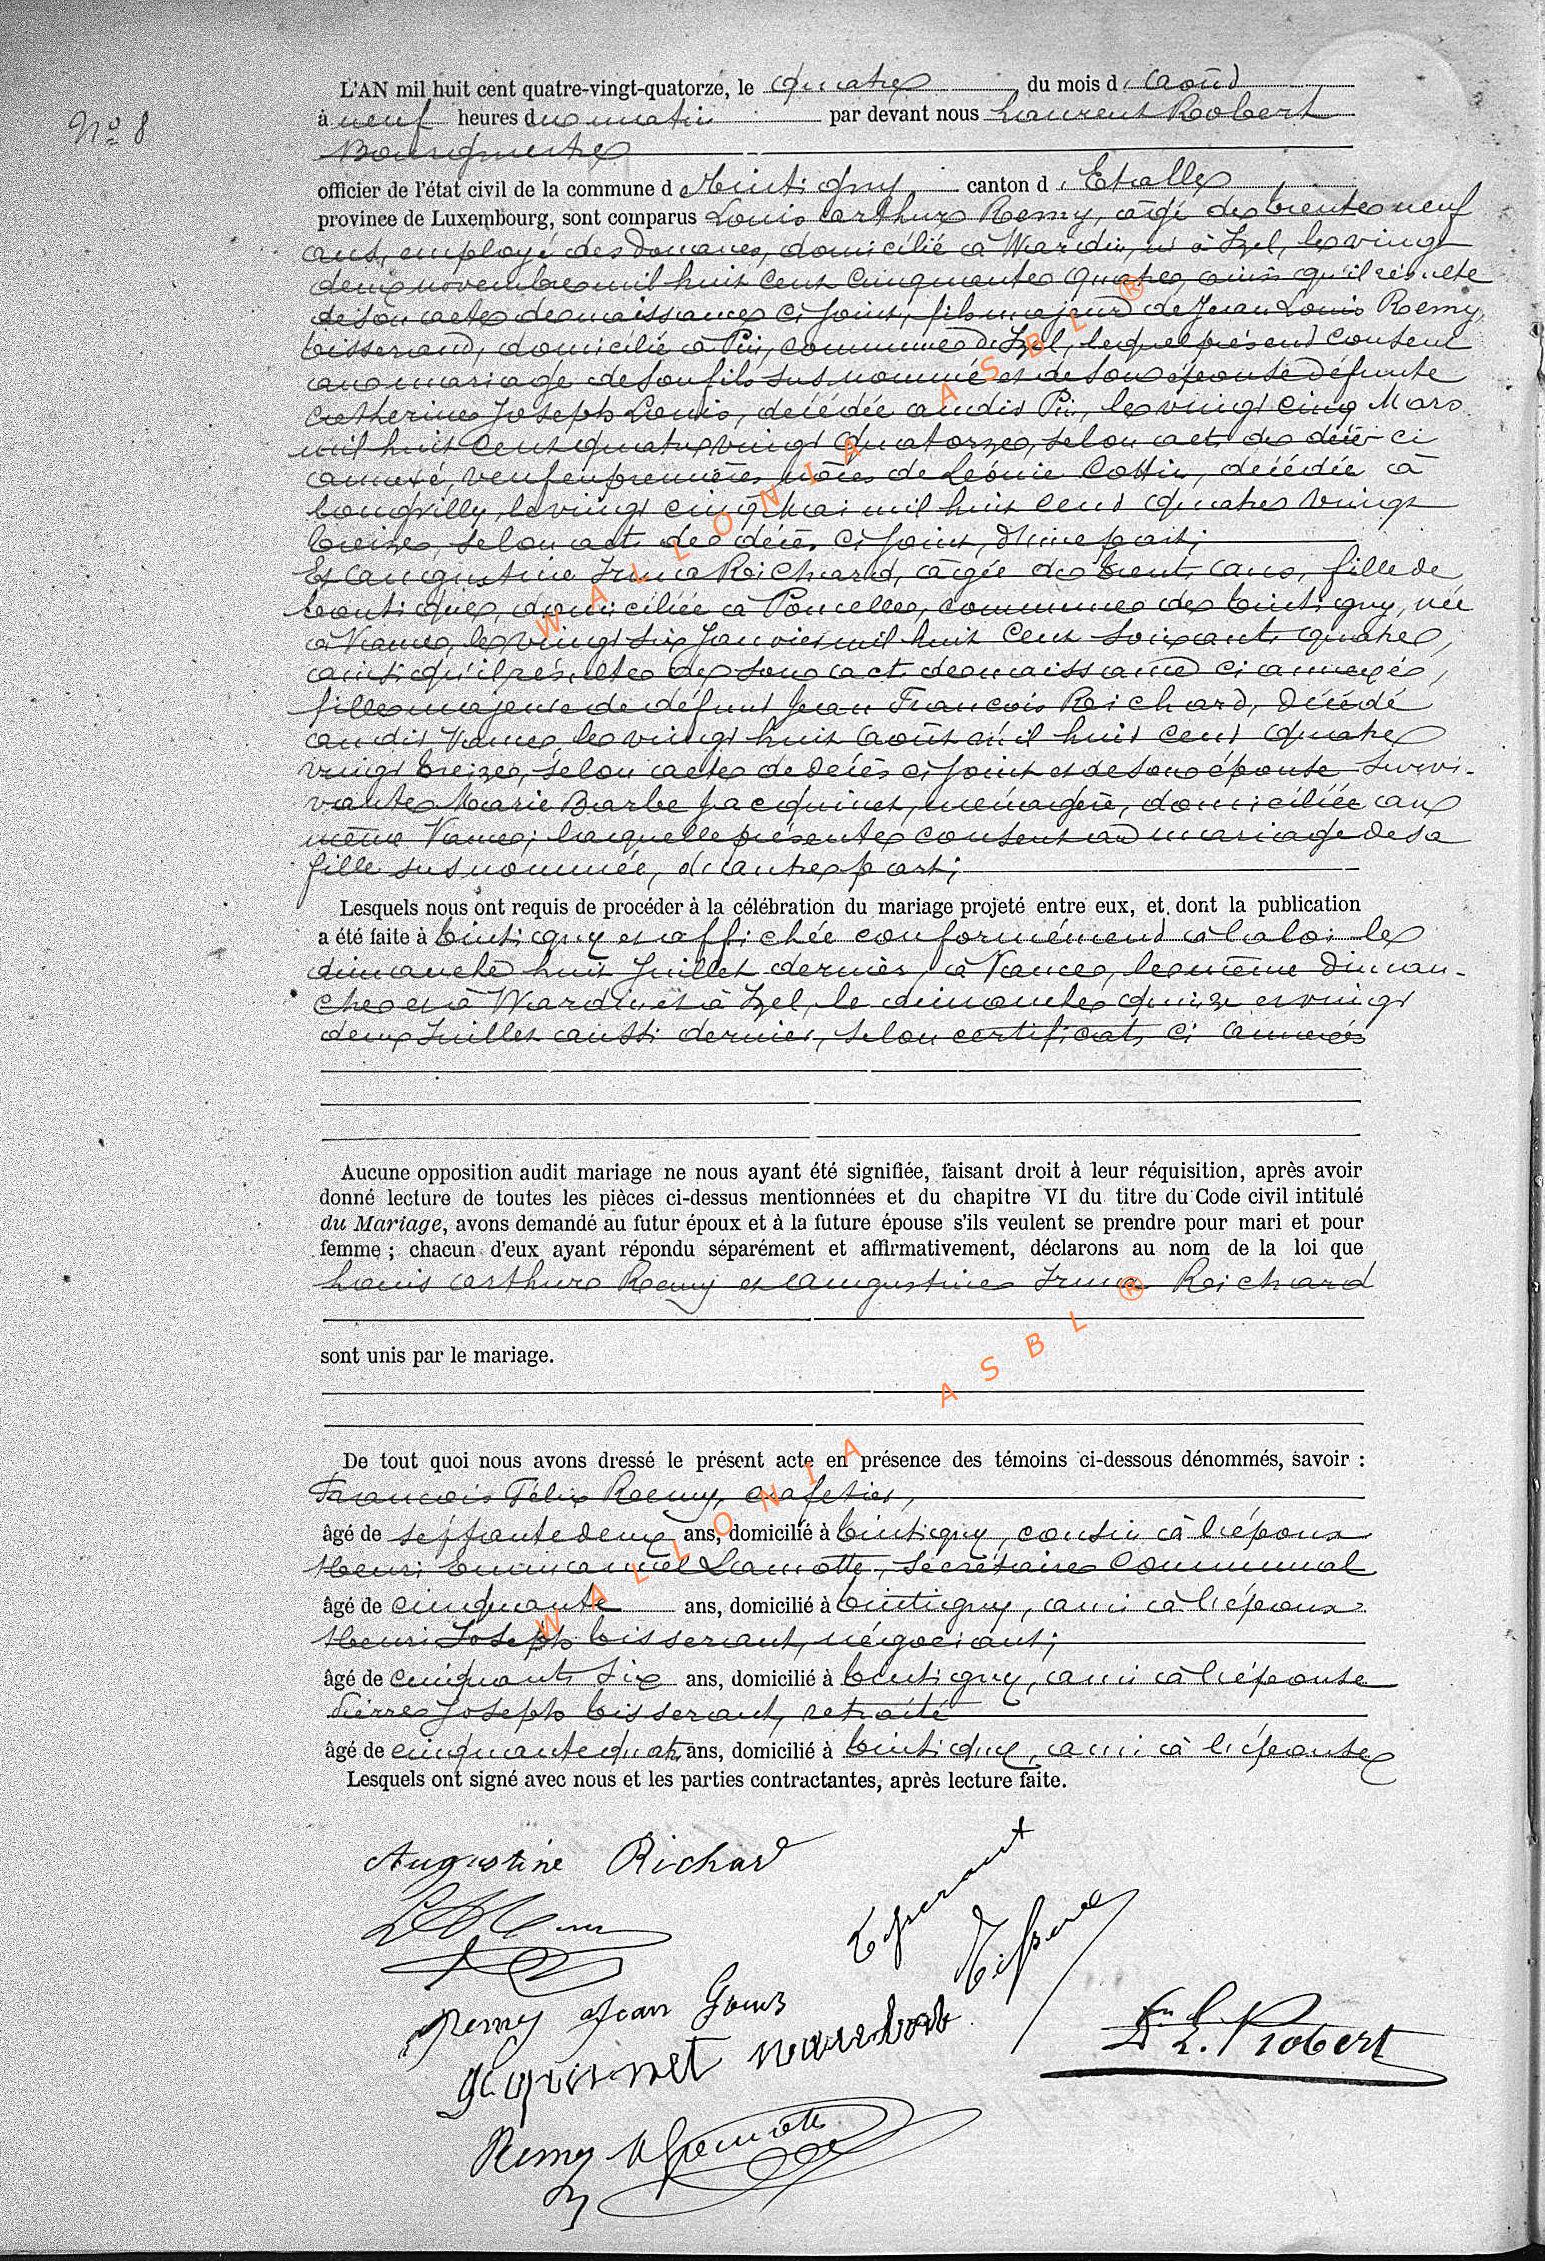 Nº 8
L'AN mil huit cent quatre-vingt-quatorze, le quatre du mois d'août
à neuf heures du matin par devant nous Laurent Robert
Bourgmestre
officier de l'état civil de la commune de Tintigny canton d'Etalle
province de Luxembourg, sont comparus Louis Arthur Remy, âgé de trente neuf
ans, employé des Douanes, domicilié à Wardin, né à Izel, le vingt
deux novembre mil huit cent cinquante quatre, ainsi qu'il résulte
de son acte de naissance ci joint, fils majeur de Jean Louis Remy,
tisserand, domicilié à Pin, commune d'Izel, lequel présent consent
au mariage de son fils sus nommé et de son épouse défunte
Catherine Joseph Louis, décédée audit Pin, le vingt cinq Mars
mil huit cent quatre vingt quatorze, selon acte de décès ci
annexé, veuf en premières nôces de Léonie Cottin, décédée à
le vingt cinq Mai mil huit cent quatre vingt
treize, selon acte de décès ci joint, d'une part;
Et Augustine Irma Reichard, âgée de trente ans, fille de
boutique, domiciliée à Poncelle, commune de Tintigny, née
à Vance, le vingt six Janvier mil huit cent soixante quatre,
ainsi qu'il résulte de son acte de naissance ci annexé,
fille majeure de défunt Jean François Reichard, décédé
audit Vance, le vingt huit août mil huit cent quatre
vingt treize, selon acte de décès ci joint et de son épouse survi-
vante Marie Barbe Jacquinet, ménagère, domiciliée au
même Vance; laquelle présente consent au mariage de sa
fille sus nommée, d'autre part;
Lesquels nous ont requis de procéder à la célébration du mariage projeté entre eux, et dont la publication
a été faite à Tintigny et affichée conformément à la loi le
dimanche huit Juillet dernier, à Vance, le même diman-
che et à Wardin et à Izel, le dimanche quinze et vingt
deux Juillet aussi dernier, selon certificats ci annexés
Aucune opposition audit mariage ne nous ayant été signifiée, faisant droit à leur réquisition, après avoir
donné lecture de toutes les pièces ci-dessus mentionnées et du chapitre VI du titre du Code civil intitulé
du Mariage, avons demandé au futur époux et à la future épouse s'ils veulent se prendre pour mari et pour
femme ; chacun d'eux ayant répondu séparément et affirmativement, déclarons au nom de la loi que
Louis Arthur Remy et Augustine Irma Reichard
sont unis par le mariage.
De tout quoi nous avons dressé le présent acte en présence des témoins ci-dessous dénommés, savoir :
François Félix Remy, cafetier,
âgé de septante deux ans, domicilié à Tintigny, cousin à l'époux
Henri Emmanuel Lamotte, secrétaire communal
âgé de cinquante ans, domicilié à Tintigny, ami à l'époux
Henri Joseph Tisserant, négociant;
âgé de cinquante six ans, domicilié à Tintigny, ami à l'épouse
Pierre Joseph Tisserant, retraité
âgé de cinquante quatre ans, domicilié à Tintigny, ami à l'épouse
Lesquels ont signé avec nous et les parties contractantes, après lecture faite.
Augustine Richard
Tisserant
Remy Jean Louis
L. Robert
Remy
WALLONIA ASBL ®
WALLONIA ASBL ®